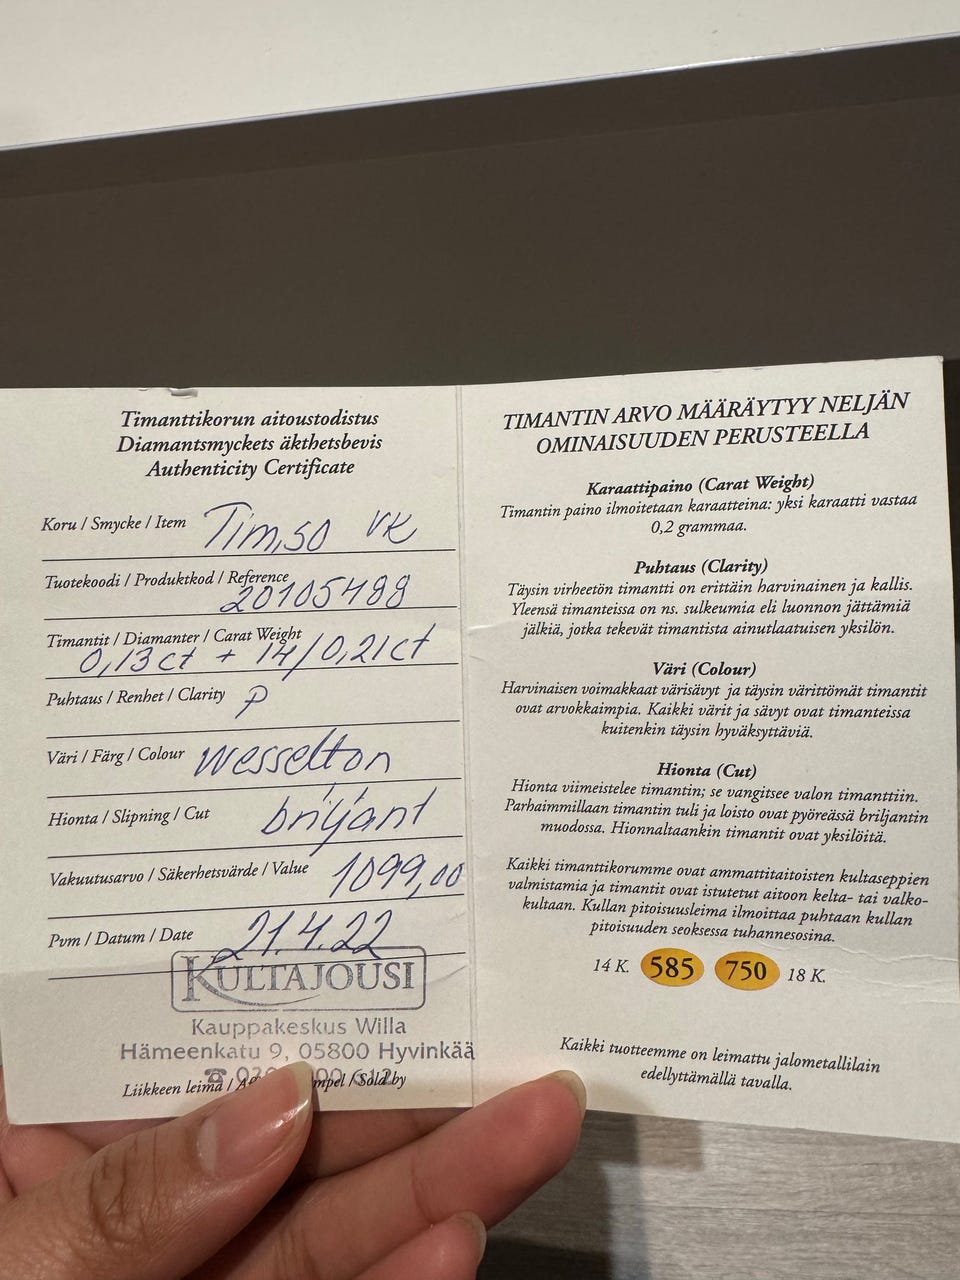 Timanttikorun aitoustodistus
Diamantsmyckets äkthetsbevis
Authenticity Certificate
Koru / Smycke / Item Tim,so VK
Tuotekoodi / Produktkod / Reference
20105488
Timantit / Diamanter / Carat Weight
0,13 ct + 14/0,21 ct
Puhtaus / Renhet / Clarity P
Väri / Färg / Colour Wesselton
Hionta / Slipning / Cut briljant
Vakuutusarvo / Säkerhetsvärde / Value 1099,00
Pvm / Datum / Date 21.4.22
KULTAJOUSI
Kauppakeskus Willa
Hämeenkatu 9, 05800 Hyvinkää
Liikkeen leima / Sold by
TIMANTIN ARVO MÄÄRÄYTYY NELJÄN
OMINAISUUDEN PERUSTEELLA
Karaattipaino (Carat Weight)
Timantin paino ilmoitetaan karaatteina: yksi karaatti vastaa
0,2 grammaa.
Puhtaus (Clarity)
Täysin virheetön timantti on erittäin harvinainen ja kallis.
Yleensä timanteissa on ns. sulkeumia eli luonnon jättämiä
jälkiä, jotka tekevät timantista ainutlaatuisen yksilön.
Väri (Colour)
Harvinaisen voimakkaat värisävyt ja täysin värittömät timantit
ovat arvokkaimpia. Kaikki värit ja sävyt ovat timanteissa
kuitenkin täysin hyväksyttäviä.
Hionta (Cut)
Hionta viimeistelee timantin; se vangitsee valon timanttiin.
Parhaimmillaan timantin tuli ja loisto ovat pyöreässä briljantin
muodossa. Hionnaltaankin timantit ovat yksilöitä.
Kaikki timanttikorumme ovat ammattitaitoisten kultaseppien
valmistamia ja timantit ovat istutetut aitoon kelta- tai valko-
kultaan. Kullan pitoisuusleima ilmoittaa puhtaan kullan
pitoisuuden seoksessa tuhannesosina.
14 K. 585 750 18 K.
Kaikki tuotteemme on leimattu jalometallilain
edellyttämällä tavalla.